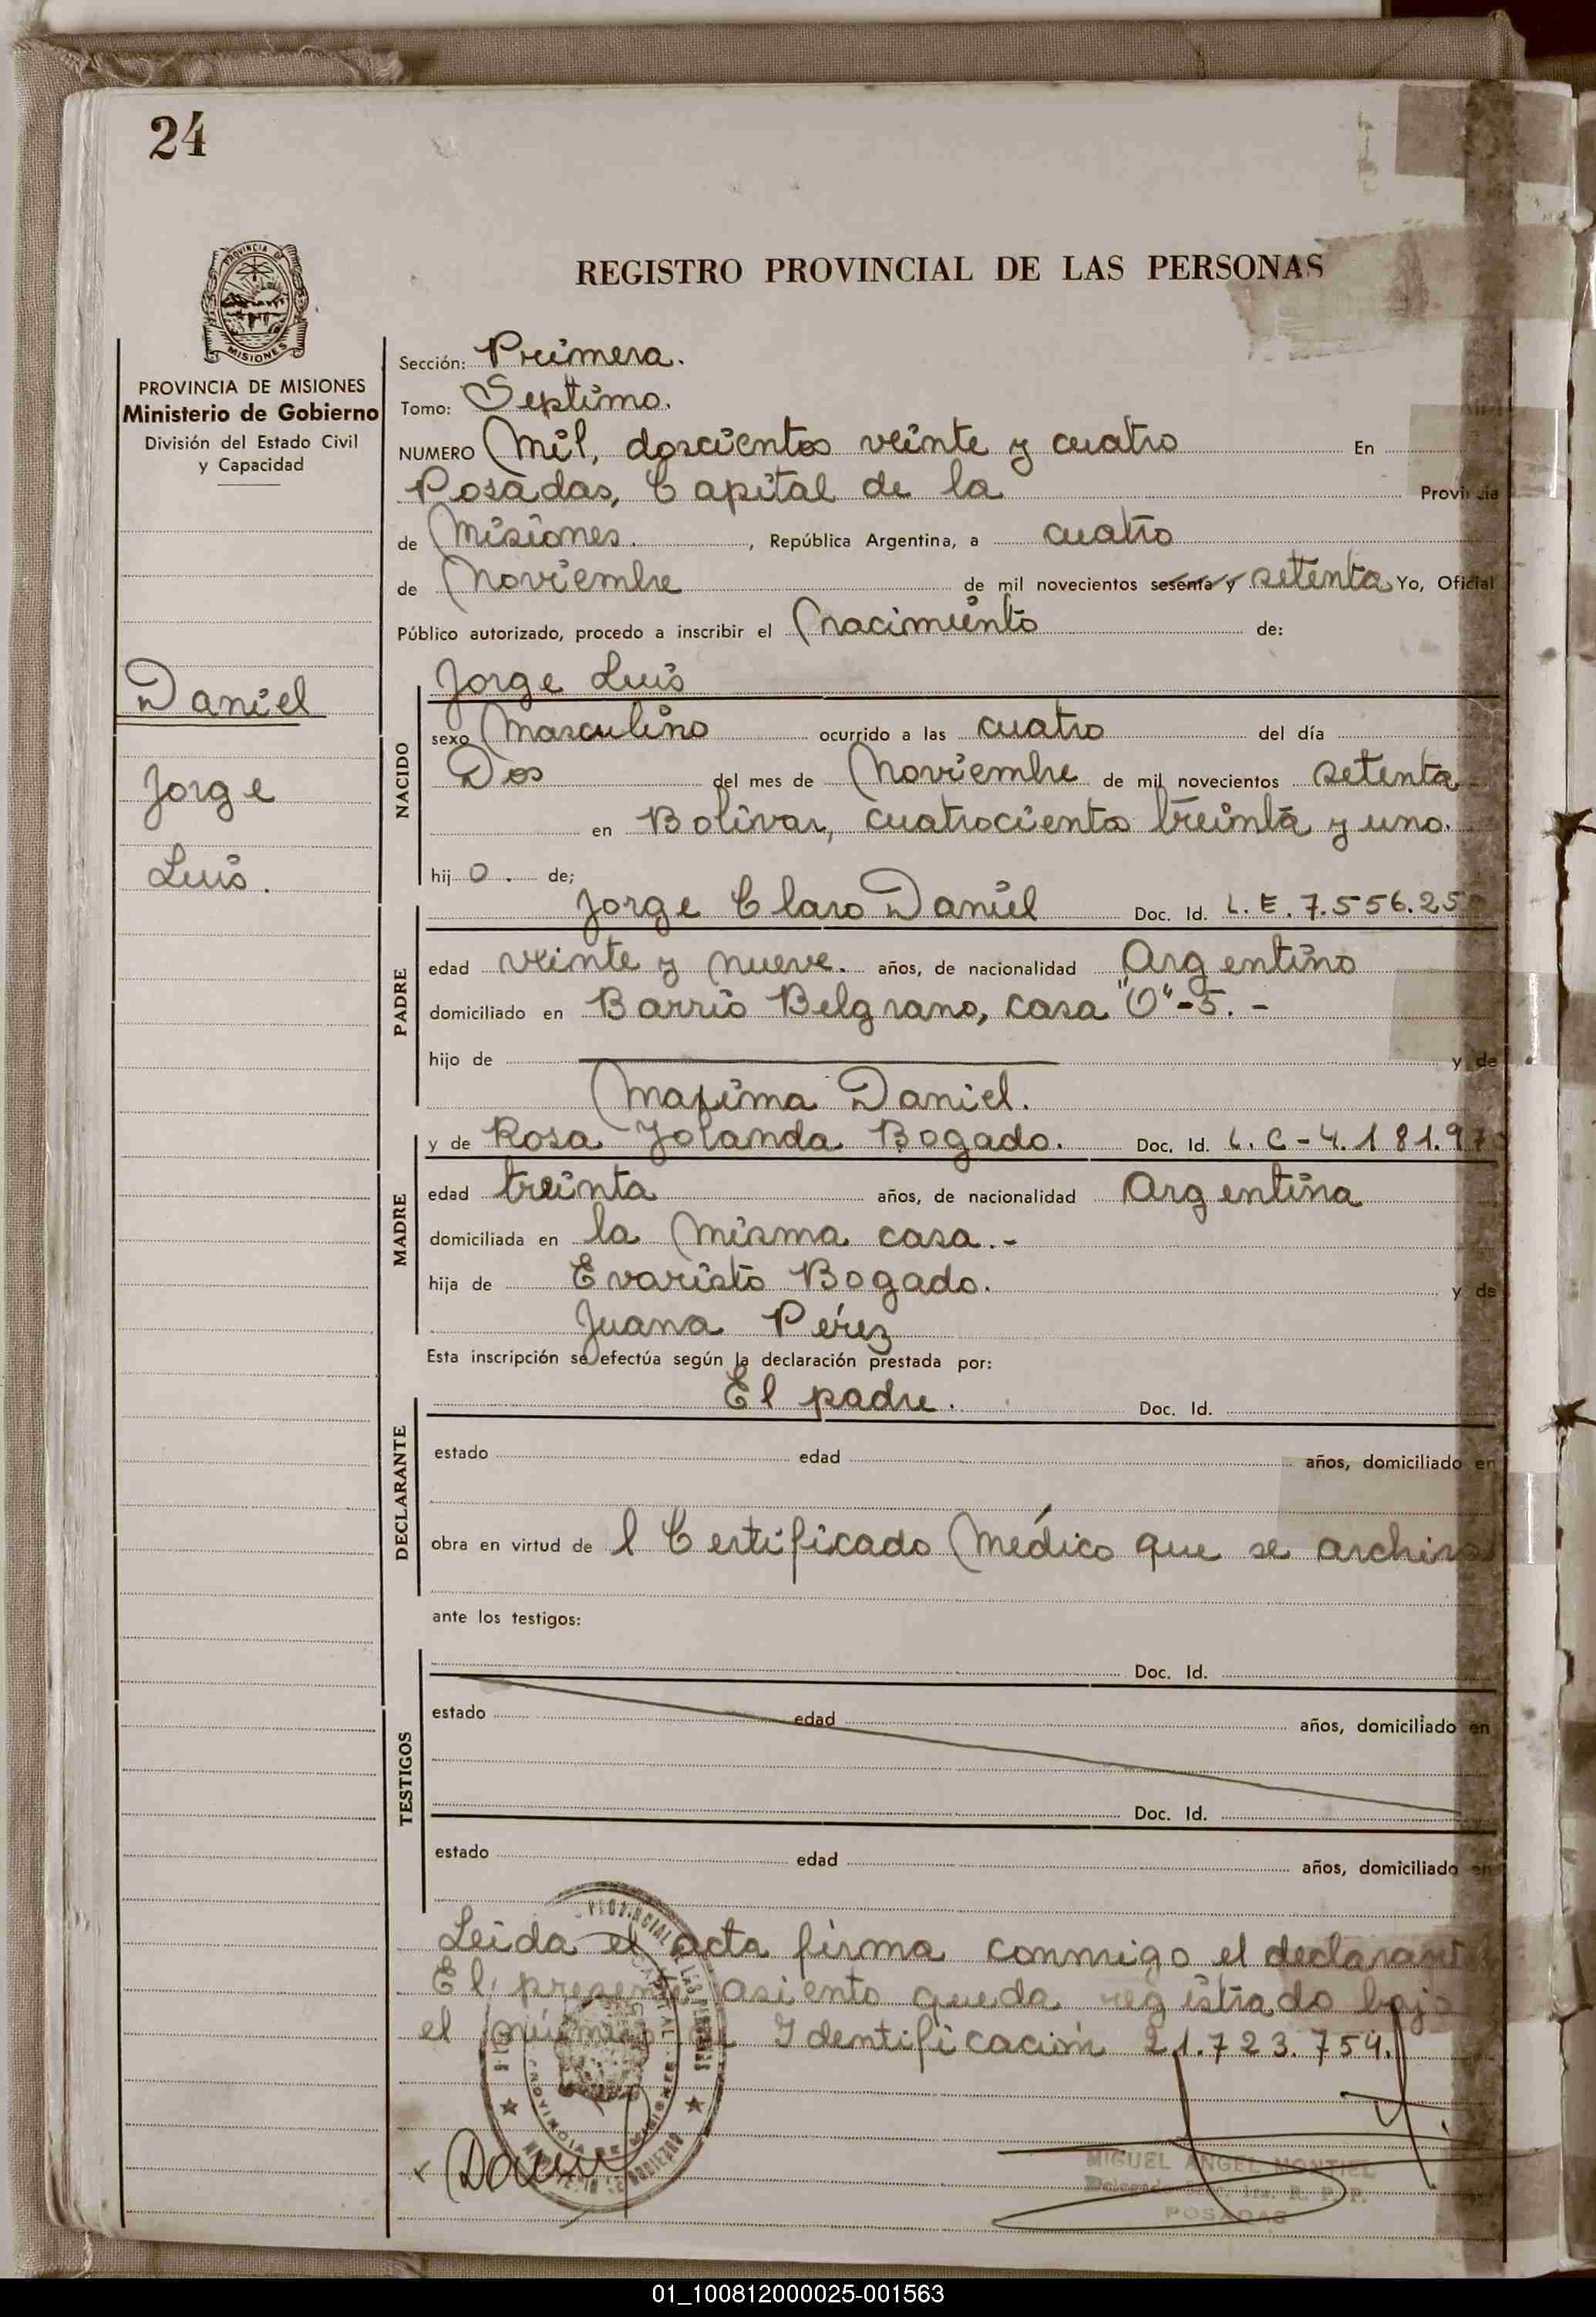 24
PROVINCIA DE
MISIONES
REGISTRO PROVINCIAL DE LAS PERSONAS
PROVINCIA DE MISIONES
Ministerio de Gobierno
División del Estado Civil
y Capacidad
Daniel
Jorge
Luis.
Sección: Primera.
Tomo: Septimo.
NUMERO Mil, doscientos veinte y cuatro En
Posadas, Capital de la Provincia
de Misiones. , República Argentina, a cuatro
de Noviembre de mil novecientos sesenta y setenta Yo, Oficial
Público autorizado, procedo a inscribir el nacimiento de:
Jorge Luis
NACIDO
sexo Masculino ocurrido a las cuatro del día
Dos del mes de Noviembre de mil novecientos setenta
en Bolivar, cuatrociento treinta y uno.
hij o. de;
Jorge Claro Daniel Doc. Id. L.E. 7.556.25
PADRE
edad veinte y nueve. años, de nacionalidad Argentino
domiciliado en Barrio Belgrano, casa "O"-5. -
hijo de y de
Maxima Daniel.
y de Rosa Yolanda Bogado. Doc. Id. L. C - 4.181.97
MADRE
edad treinta años, de nacionalidad Argentina
domiciliada en la misma casa.-
hija de Evaristo Bogado. y de
Juana Pérez
Esta inscripción se efectúa según la declaración prestada por:
El padre. Doc. Id.
DECLARANTE
estado edad años, domiciliado en
obra en virtud de l Certificado Médico que se archiva
ante los testigos:
Doc. Id.
TESTIGOS
estado edad años, domiciliado en
Doc. Id.
estado edad años, domiciliado en
Leida el acta firma conmigo el declarant
El presente asiento queda registrado bajo
el número de Identificación 21.723.754.
MIGUEL ANGEL MONTIEL
R. P. P.
POSADAS
01_100812000025-001563